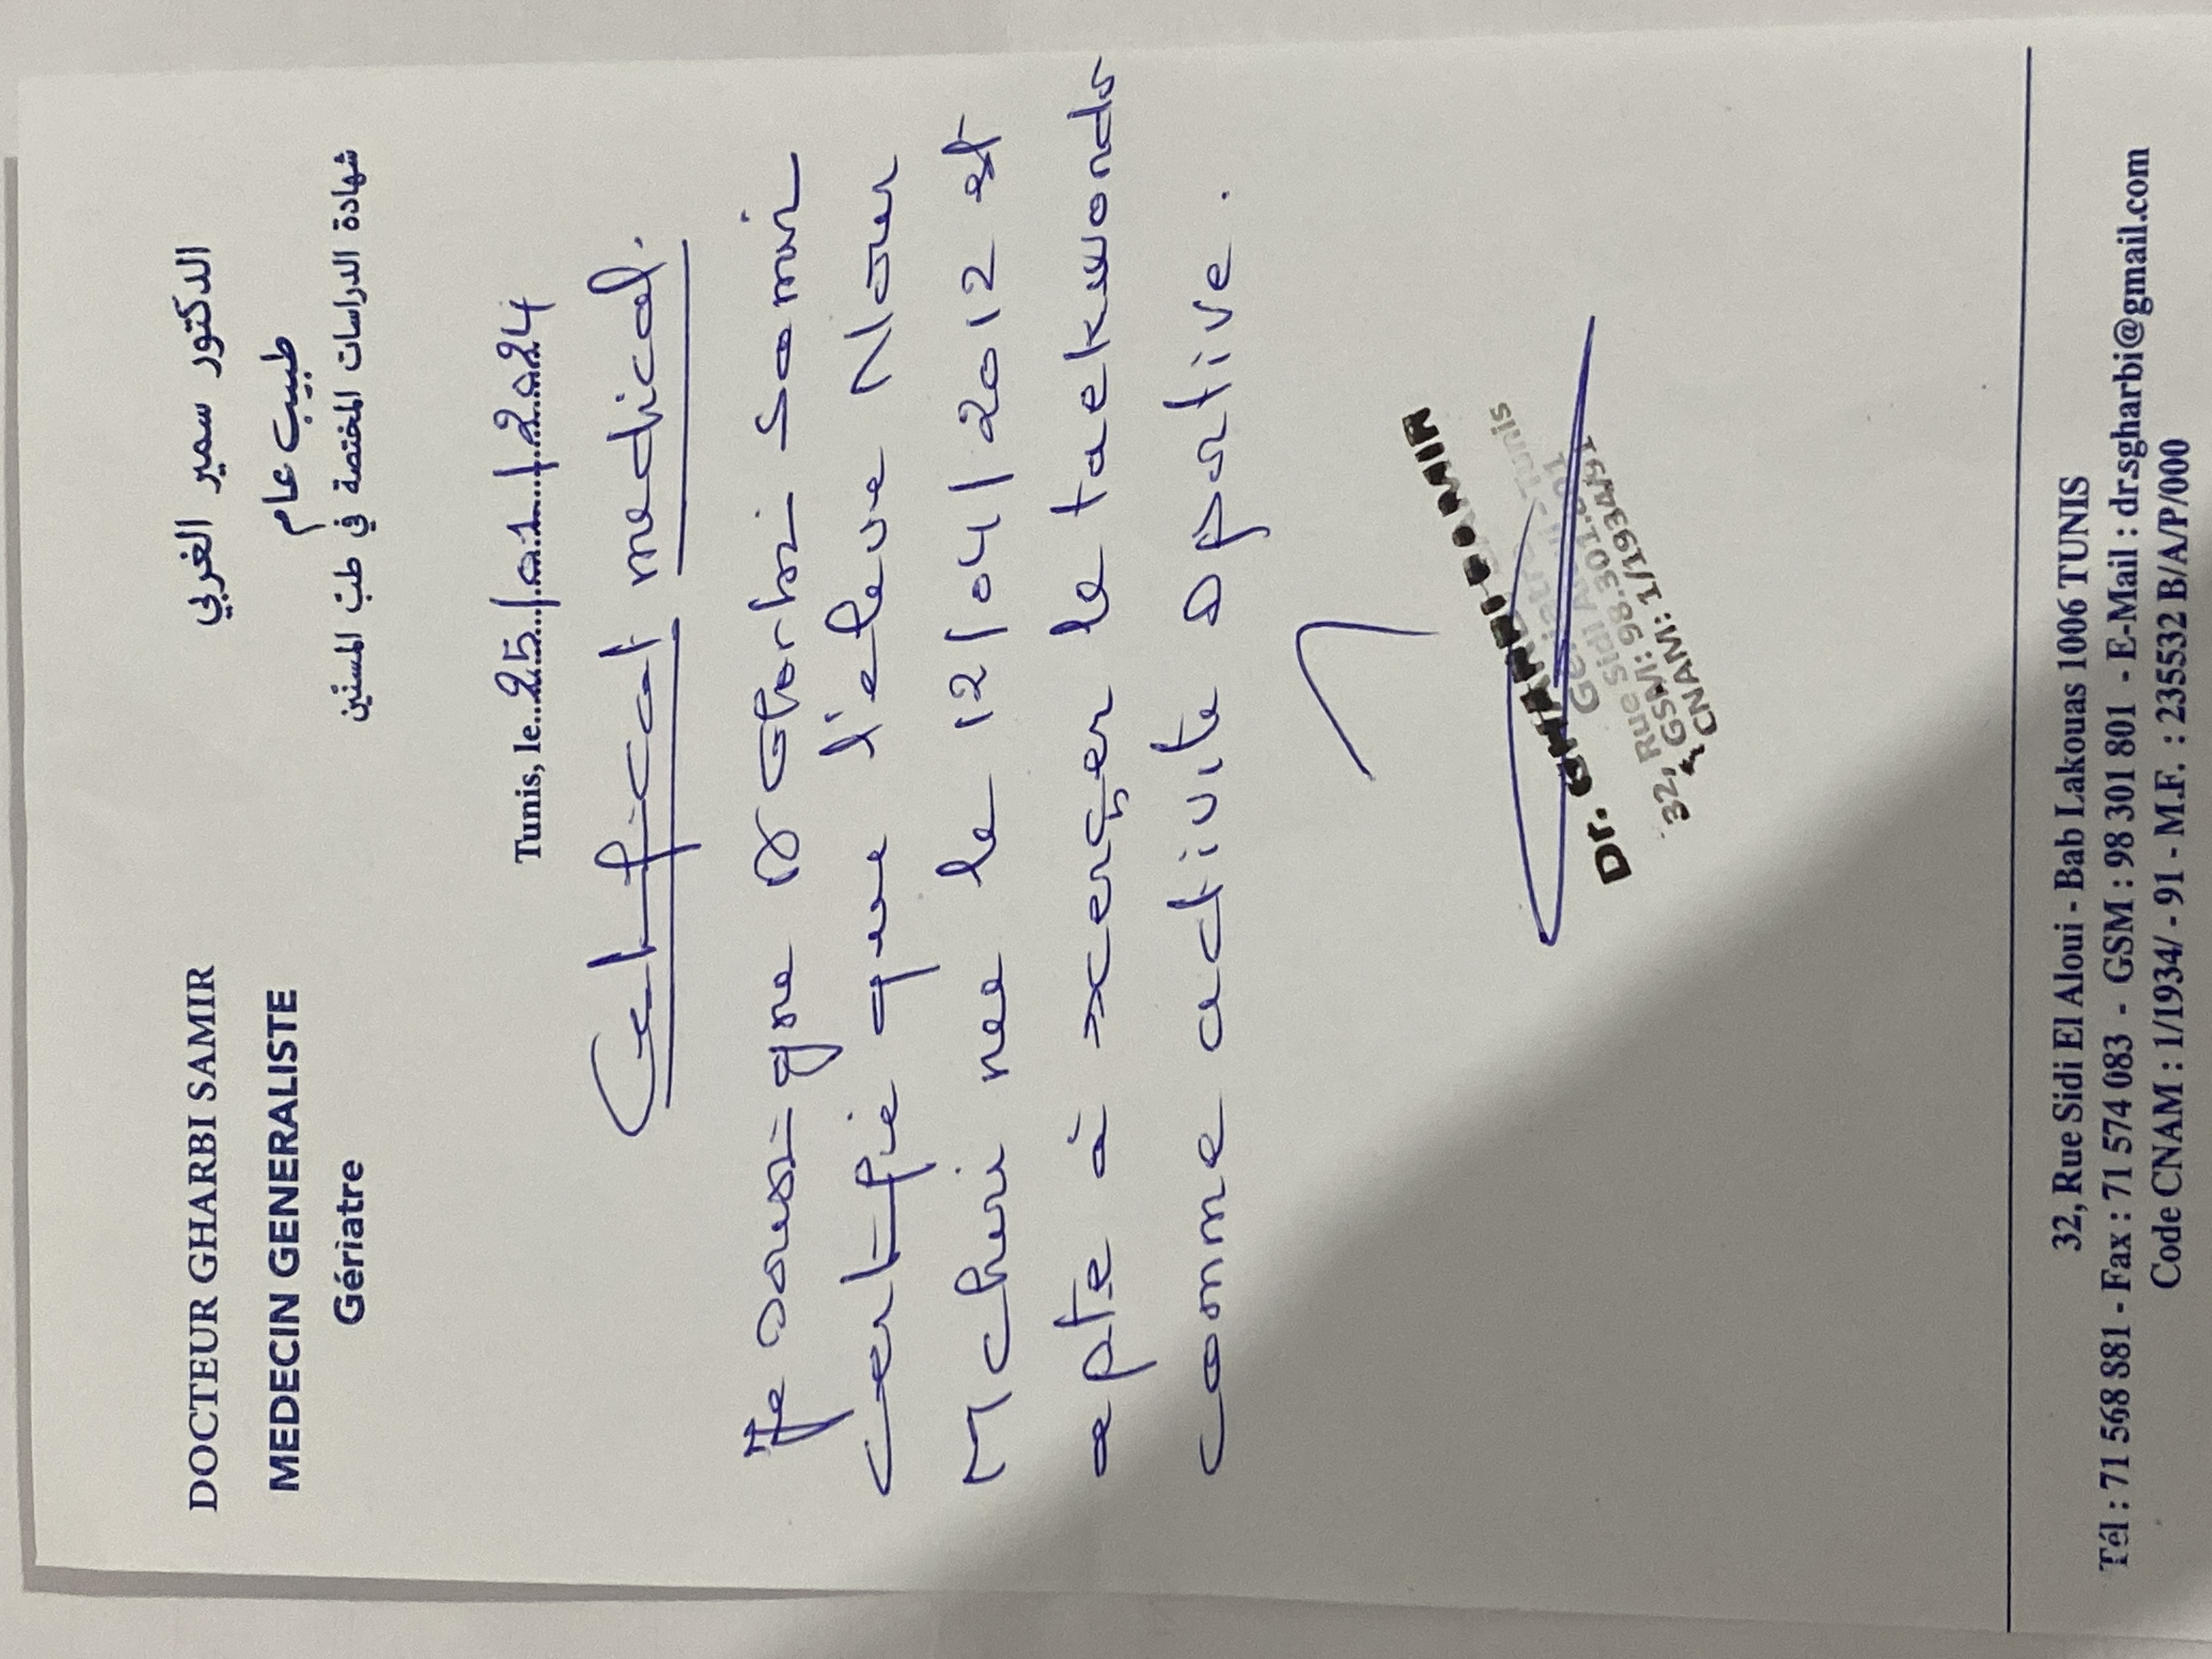 DOCTEUR GHARBI SAMIR
MEDECIN GENERALISTE
Gériatre
الدكتور سمير الغربي
طبيب عام
شهادة الدراسات المختصة في طب المسنين
Tunis, le 25/01/2024
Certificat medical.
Je soussigne Dr Gharbi Samir
certifie que l'eleve Nour
Mcheri nee le 12/04/2012 est
apte à xerçer le taekwondo
comme activite sportive.
Dr. GHARBI SAMIR
32, Rue Sidi
GSM: 98.301.801
CNAM: 1/1934/91
32, Rue Sidi El Aloui - Bab Lakouas 1006 TUNIS
Tél : 71 568 881 - Fax : 71 574 083 - GSM : 98 301 801 - E-Mail : drsgharbi@gmail.com
Code CNAM : 1/1934/ - 91 - M.F. : 235532 B/A/P/000